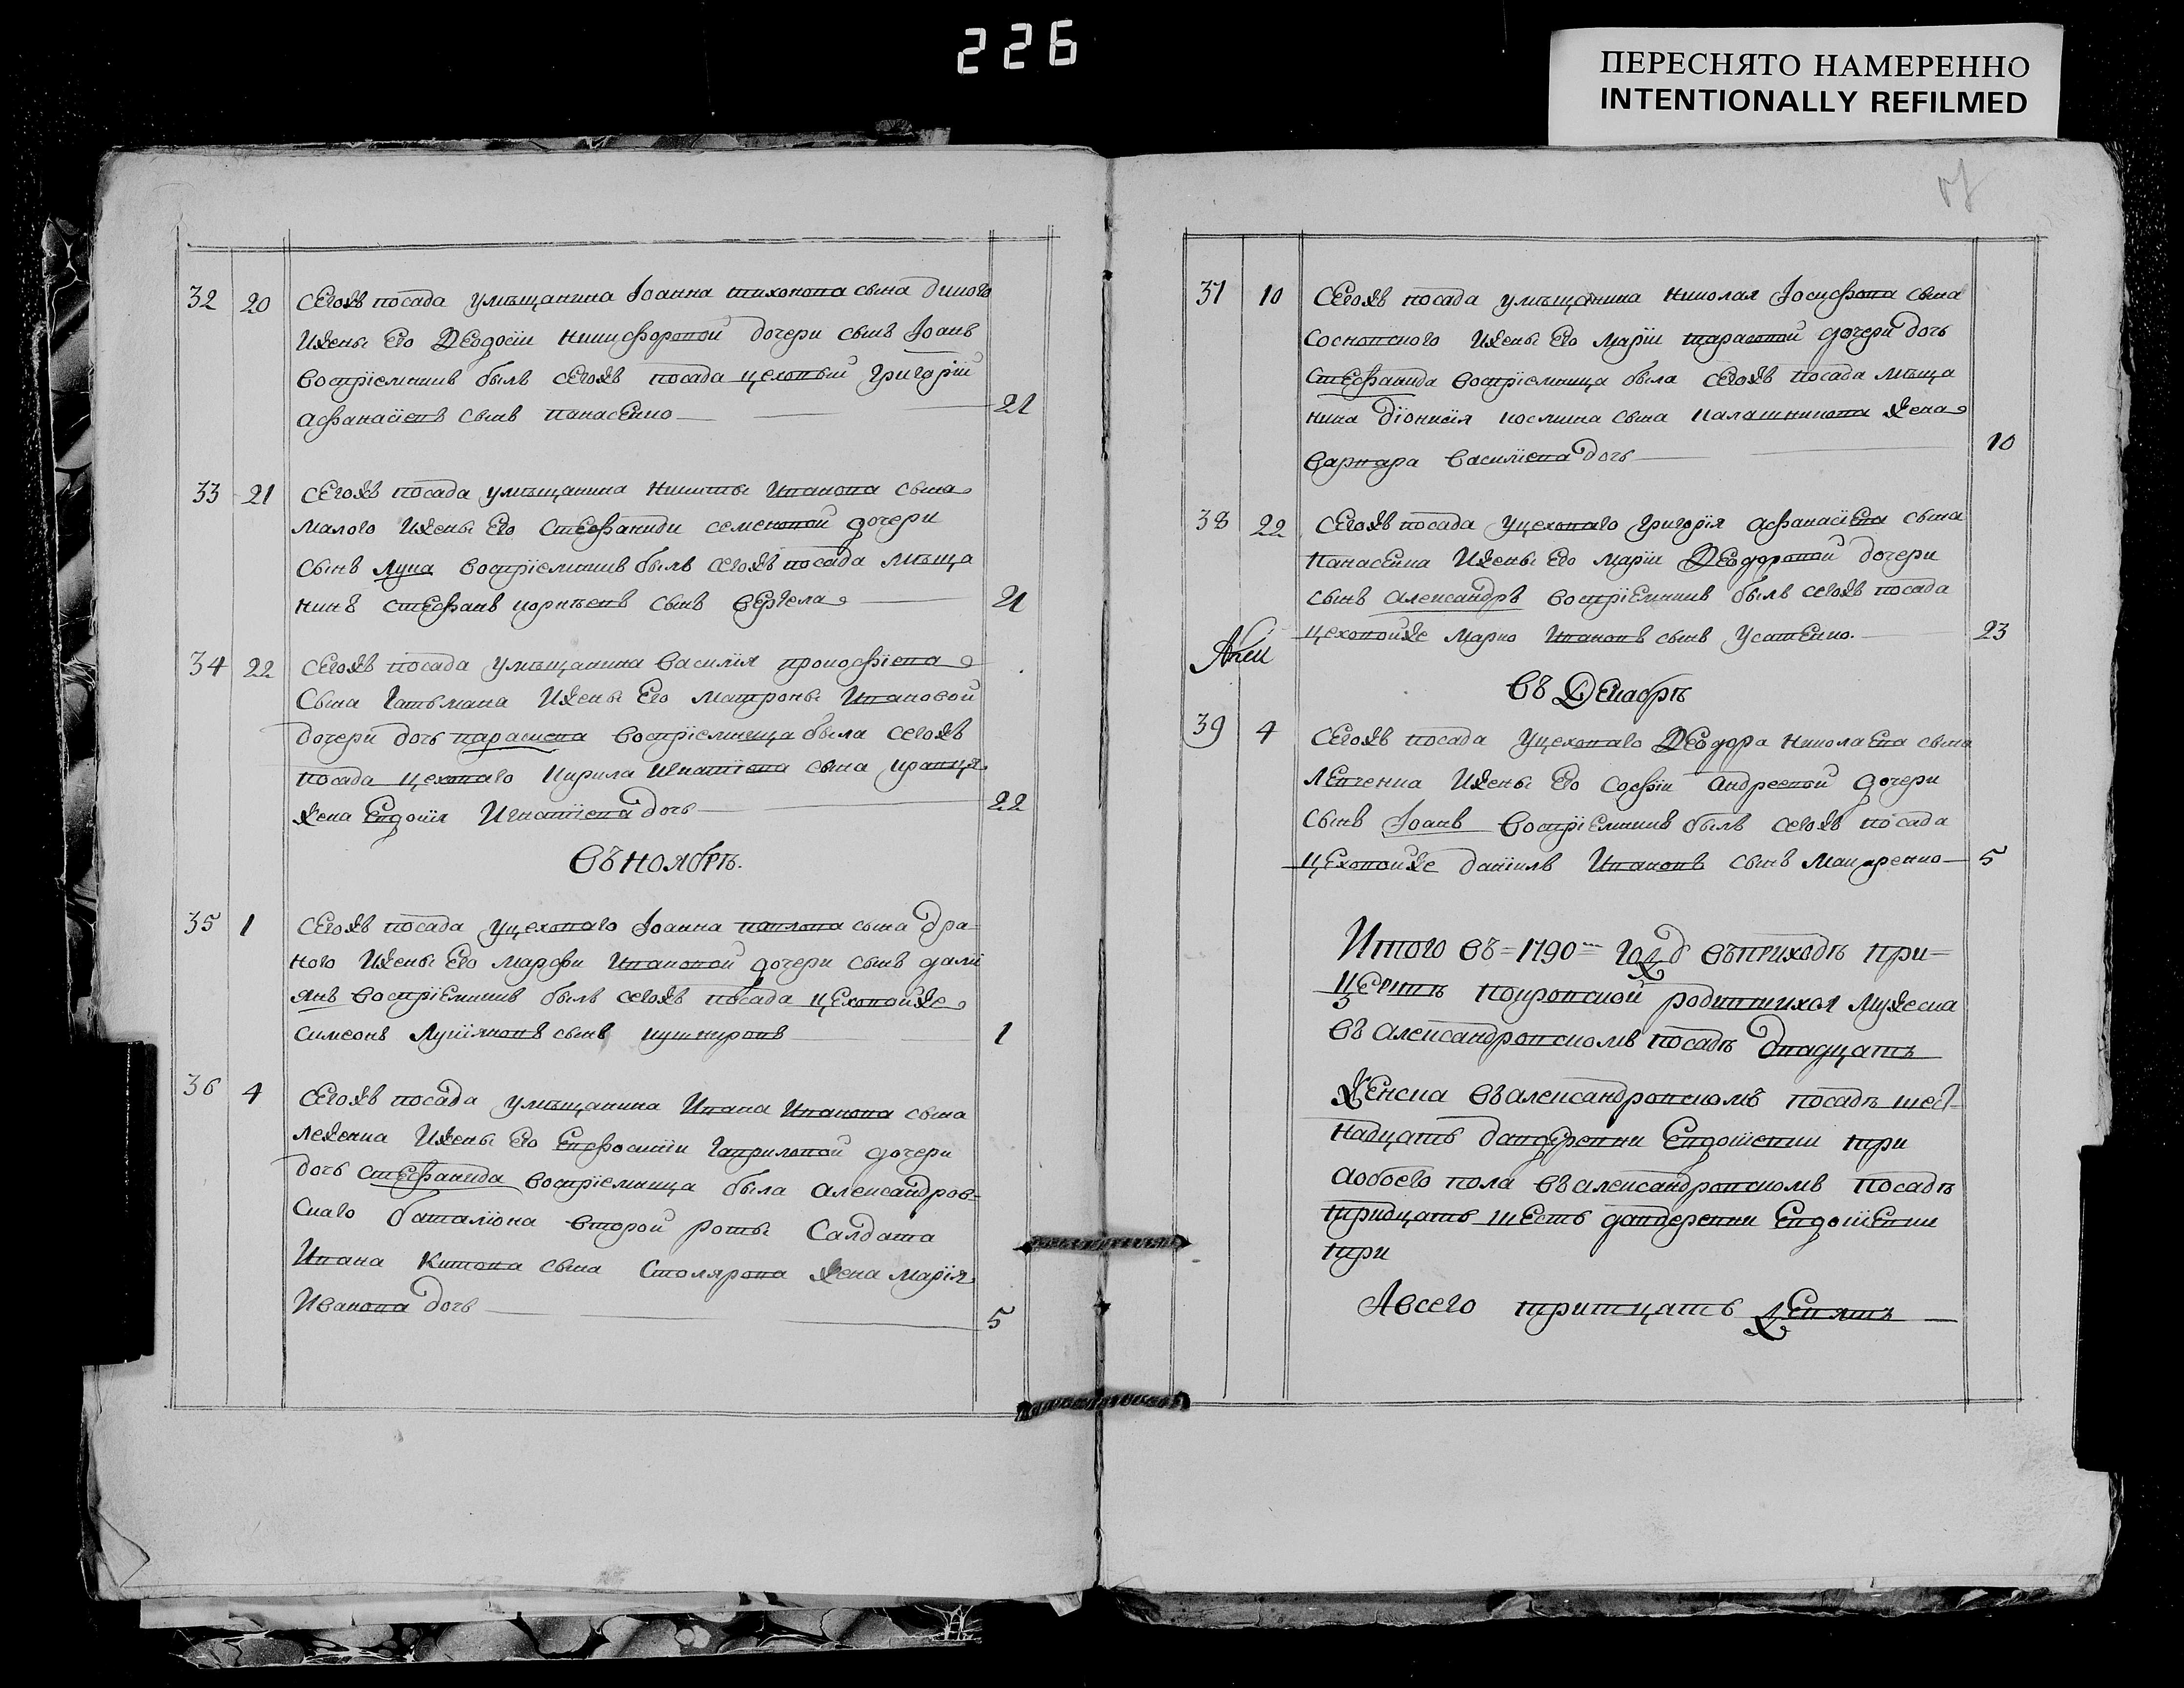 226
ПЕРЕСНЯТО НАМЕРЕННО
INTENTIONALLY REFILMED
32 20 Сегожъ посада умѣщанина Іоанна тихонова сына дикого
ижены его Ѳеодосіи никифоровой дочери сынъ Іоанъ
воспріемникъ былъ сегожъ посада цеховый григорій
афанасіевъ сынъ панасенко 21
33 21 сегожъ посада умѣщанина никиты иванова сына
малого ижены его стефаниди семеновой дочери
сынъ лука воспріемникъ былъ сегожъ посада мѣща
нинъ стефанъ корнѣевъ сынъ вергела 21
34 22 сегожъ посада умѣщанина василія прокофіева
сына гатьмана ижены его матроны ивановой
дочери дочь параскева воспріемница была сегожъ
посада цеховаго кирила игнатіева сына кравця
жена евдокія игнатіева дочь 22
въ ноябрѣ.
35 1 сегожъ посада уцеховаго Іоанна павлова сына дра-
ного ижены его марфи ивановой дочери сынъ дамі
янъ воспріемникъ былъ сегожъ посада цеховойже
симеонъ лукіяновъ сынъ кушнировъ 1
36 4 сегожъ посада умѣщанина ивана иванова сына
леженка ижены его евфосиніи гавриловой дочери
дочь стефанида воспріемница была александров-
скаго баталіона второй роты салдата
ивана китова сына столярова жена марія
иванова дочь 5
37 10 сегожъ посада умѣщанина николая Іосифова сына
сосновского ижены его маріи тарасовой дочери дочь
стефанида воспріемница была сегожъ посада мѣща
нина діонисія космина сына калашникова жена
варвара василіева дочь 10
38 22 сегожъ посада уцеховаго григорія афанасіева сына
панасенка ижены его маріи Ѳеодоровой дочери
сынъ александръ воспріемникъ былъ сегожъ посада
цеховойже марко ивановъ сынъ усатенко. 23
въ декабрѣ
39 4 сегожъ посада уцеховаго Ѳеодора николаева сына
левченка ижены его софіи андреевой дочери
сынъ Іоанъ воспріемникъ былъ сегожъ посада
цеховойже даніилъ ивановъ сынъ макаренко 5
Итого въ=1790=мъ годѣ въприходѣ при=
церквѣ покровской родившихся мужеска
въ александровскомъ посадѣ двадцать
женска въалександровскомъ посадѣ шест-
надцать вандеревни евдокіевки три
аобоего пола въалександровскомъ посадѣ
тридцать шесть вандеревни евдокіевки
три
Авсего тритцать девять